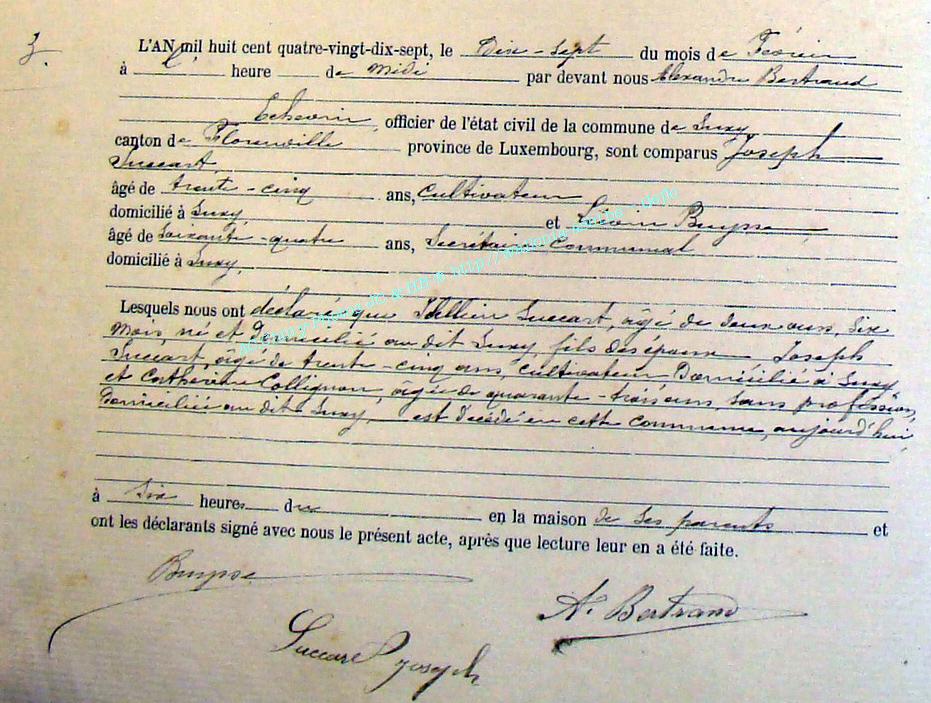 3.
L'AN mil huit cent quatre-vingt-dix-sept, le Dix-sept du mois de Février
à heure de midi par devant nous Alexandre Bertrand
Echevin, officier de l'état civil de la commune de Suxy
canton de Florenville province de Luxembourg, sont comparus Joseph
Succart
âgé de trente-cinq ans, Cultivateur
domicilié à Suxy et Livin Buysse
âgé de Soixante-quatre ans, Secrétaire Communal
domicilié à Suxy,
Lesquels nous ont déclaré que Succart, âgé de deux ans, six
mois, né et domicilié au dit Suxy, fils des époux Joseph
Succart, âgé de trente-cinq ans, cultivateur domicilié à Suxy,
et Cathérine Collignon, âgée de quarante-trois ans, sans profession,
domiciliée au dit Suxy, est décédé en cette commune, aujourd'hui
à six heures du en la maison de ses parents et
ont les déclarants signé avec nous le présent acte, après que lecture leur en a été faite.
Buysse
A. Bertrand
Succart Joseph